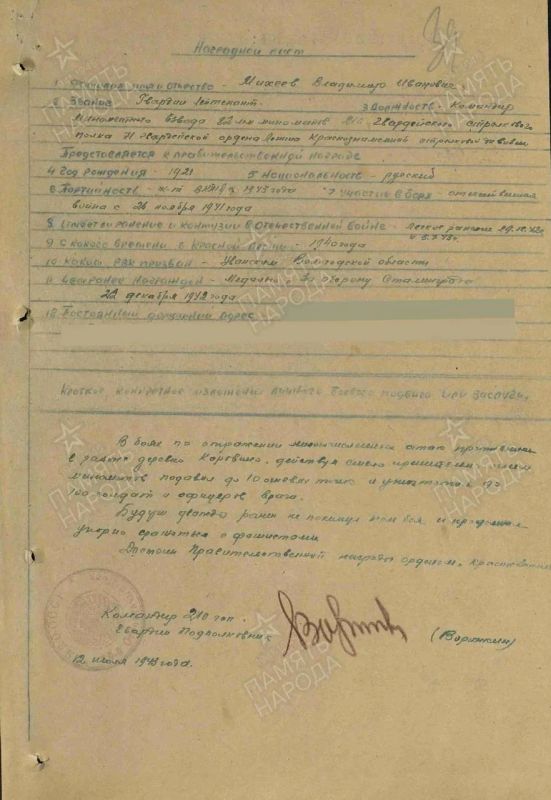 Наградной лист
1. Фамилия имя и отчество - Михеев Владимир Иванович
2. Звание - Гвардии Лейтенант. 3 Должность - Командир
Минометного взвода 82 мм минометов 210 Гвардейского стрелкового
полка 71 Гвардейской ордена Ленина Краснознаменной стрелковой дивизии
Представляется к правительственной награде
4 Год рождения - 1921 5 Национальность - русский
6 Партийность - 1943 года 7 Участие в боях - отечественная
война с 26 ноября 1941 года
8 Имеет ли ранение и контузии в отечественной войне - легкое ранение
и 5.7.43г.
9 С какого времени в Красной Армии - 1940 года
10 Каким РВК призван - Вологодской области
11 Чем ранее награжден - Медалью За оборону Сталинграда
22 декабря 1942 года
12 Постоянный домашний адрес
Краткое, конкретное изложение личного боевого подвига или заслуги.
В боях по отражении многочисленных атак противника
в районе деревни действуя смело и решительно огнем
минометов подавил до 10 огневых точек и уничтожил до
100 солдат и офицеров врага.
Будучи дважды ранен не покинул поля боя и продолжал
упорно сражаться с фашистами
Достоин Правительственной награды орденом
Командир 210 гсп.
Гвардии Подполковник
12 июля 1943 года.
ПАМЯТЬ
НАРОДА
ПАМЯТЬ
НАРОДА
ПАМЯТЬ
НАРОДА
ПАМЯТЬ
НАРОДА